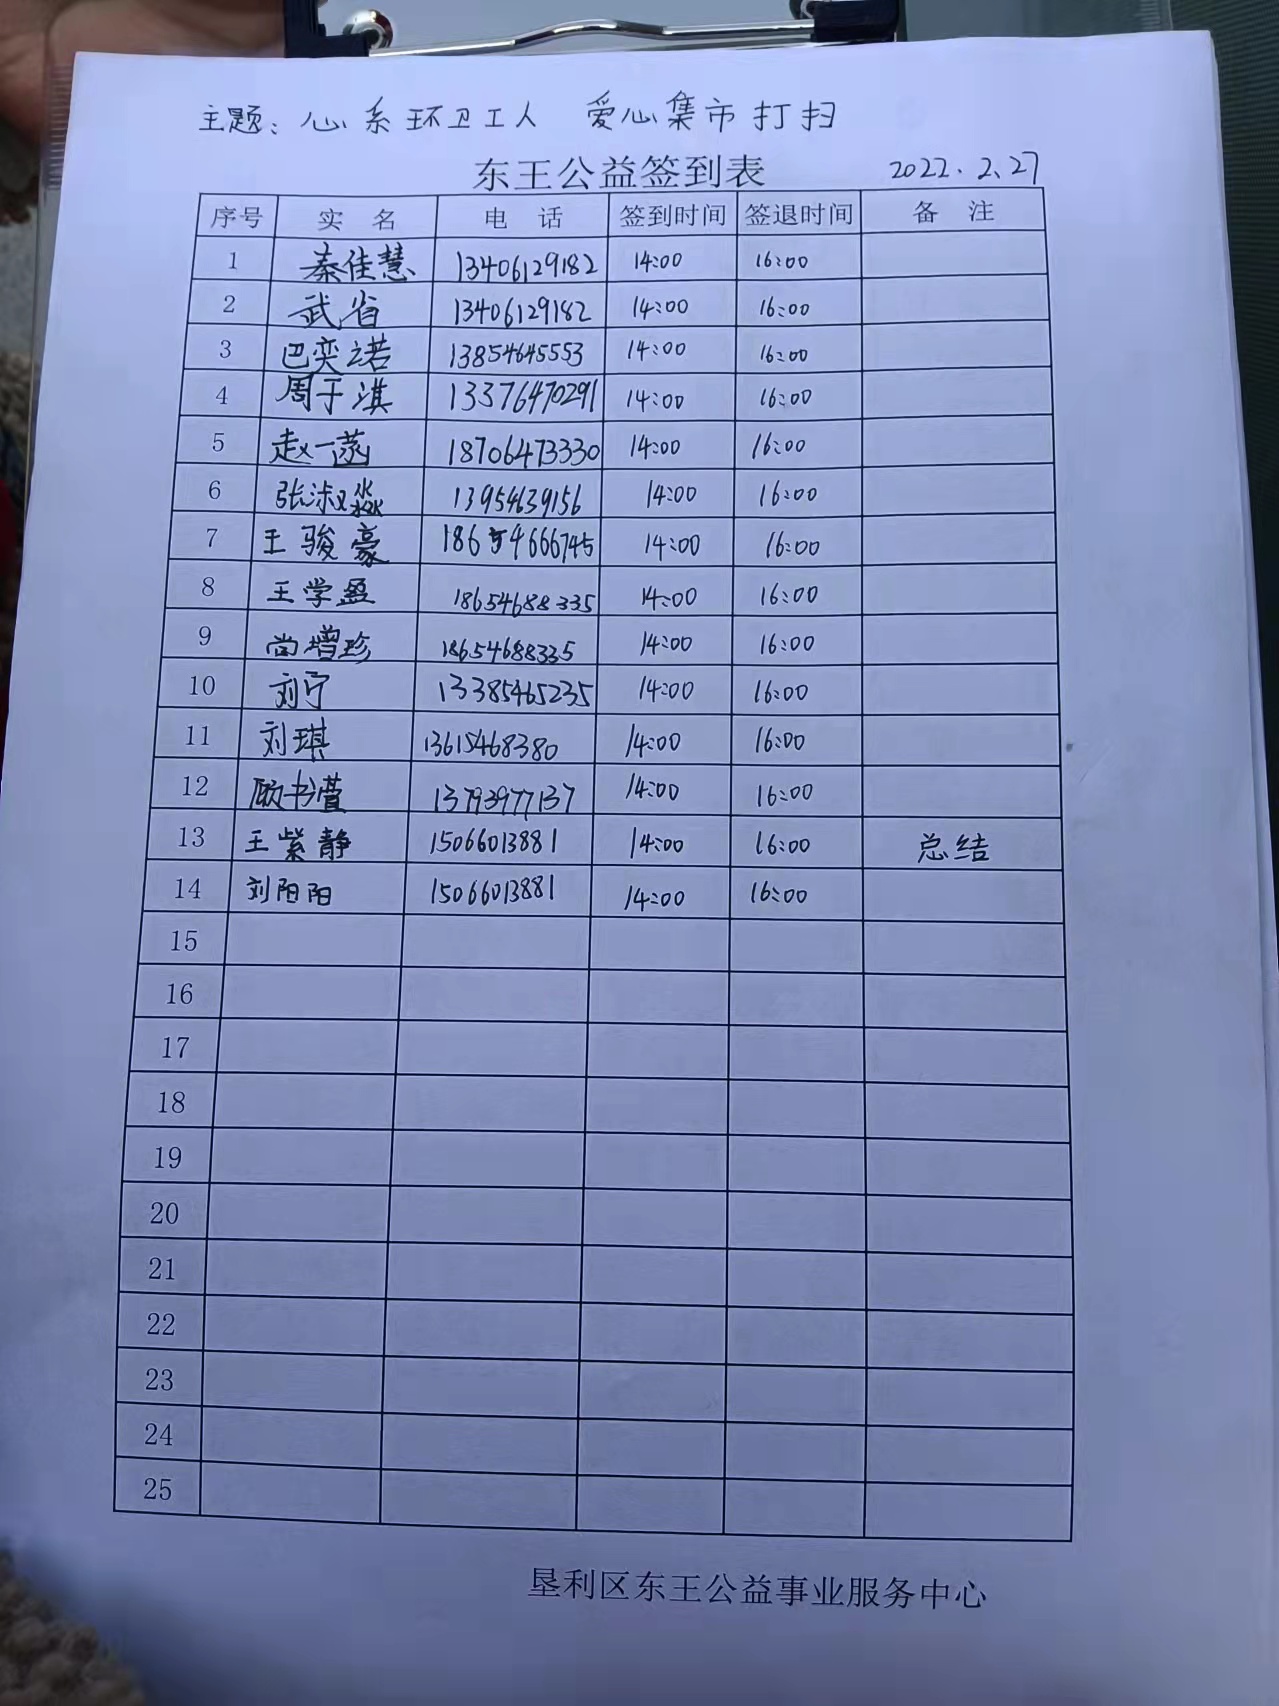 主题：心系环卫工人 爱心集市打扫
东王公益签到表 2022.2.27
序号 实 名 电 话 签到时间 签退时间 备 注
1 秦佳慧 13406129182 14:00 16:00
2 武省 13406129182 14:00 16:00
3 巴奕诺 13854645553 14:00 16:00
4 周于淇 13376470291 14:00 16:00
5 赵一菡 18706473330 14:00 16:00
6 张淑淼 13954639156 14:00 16:00
7 王骏豪 18654666745 14:00 16:00
8 王学盈 18654688335 14:00 16:00
9 尚增珍 18654688335 14:00 16:00
10 刘宁 13385465235 14:00 16:00
11 刘琪 13615468380 14:00 16:00
12 顾书萱 13793977137 14:00 16:00
13 王紫静 15066013881 14:00 16:00 总结
14 刘阳阳 15066013881 14:00 16:00
15
16
17
18
19
20
21
22
23
24
25
垦利区东王公益事业服务中心